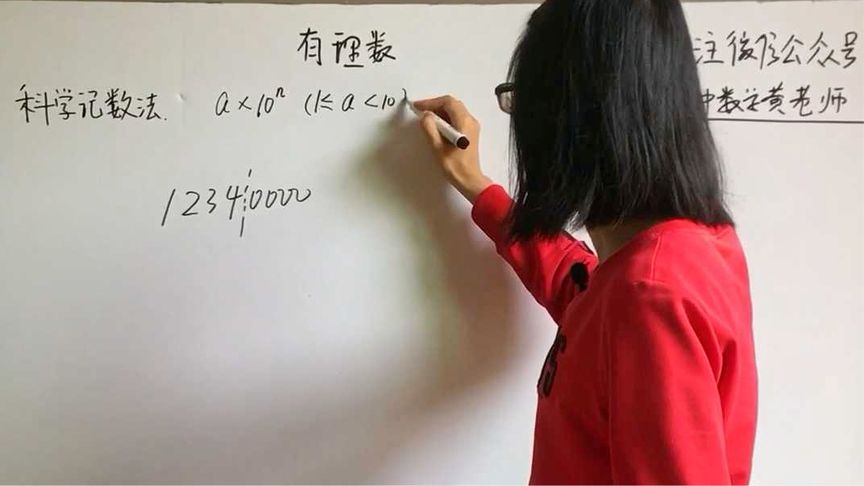 有理数
注微信公众号
科学记数法. a×10ⁿ (1≤a<10)
中数学黄老师
1234¦0000